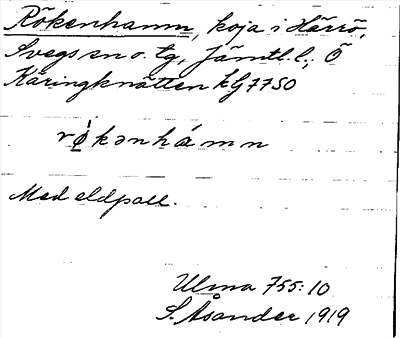 Rökenhamn, koja i Härrö,
Svegs sn o. tg, Jämtl. l.; Ö
Käringknätten kG 7750
rökənhámn
Med eldpall.
Ulma 755:10
S. Åsander 1919